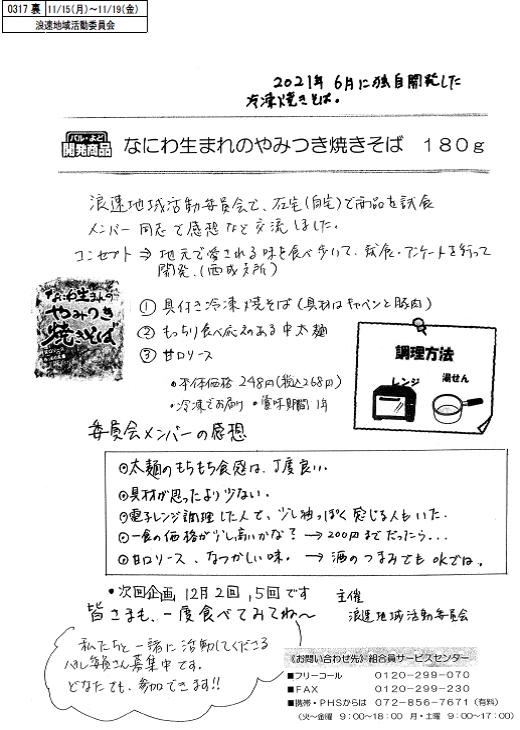 0317 裏 11/15(月)~11/19(金)
浪速地域活動委員会
2021年6月に独自開発した
冷凍焼きそば。
パル・よど
開発商品
なにわ生まれのやみつき焼きそば 180g
浪速地域活動委員会で、在宅(自宅)で商品を試食
メンバー同志で感想など交流しました。
コンセプト⇒地元で愛される味を食べ歩いて、試食・アンケートを行って
開発。(西成支所)
なにわ生まれの
やみつき
焼きそば
①具付き冷凍焼そば(具材はキャベツと豚肉)
②もっちり食べ応えのある中太麺
③甘口ソース
•本体価格248円(税込268円)
•冷凍でお届け •賞味期間1年
調理方法
レンジ
湯せん
委員会メンバーの感想
◎太麺のもちもち食感は、丁度良い。
◎具材が思ったより少ない。
◎電子レンジ調理した人で、少し油っぽく感じる人もいた。
◎一食の価格が少し高いかな?→200円までだったら...
◎甘口ソース、なつかしい味。→酒のつまみでもOKでは。
•次回企画 12月2回,5回です
主催
浪速地域活動委員会
皆さまも、一度食べてみてね〜
私たちと一緒に活動してくださる
パル委員さん募集中です。
どなたでも、参加できます!!
《お問い合わせ先》組合員サービスセンター
■フリーコール 0120-299-070
■FAX 0120-299-230
■携帯・PHSからは 072-856-7671(有料)
(火~金曜 9:00~18:00 月・土曜 9:00~17:00)